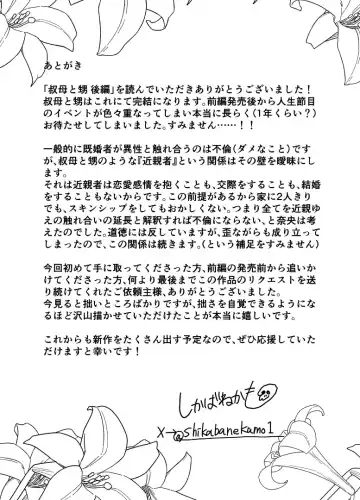 あとがき
「叔母と甥 後編」を読んでいただきありがとうございました！
叔母と甥はこれにて完結になります。前編発売後から人生節目
のイベントが色々重なってしまい本当に長らく(1年くらい？)
お待たせしてしまいました。すみません……！！
一般的に既婚者が異性と触れ合うのは不倫(ダメなこと)です
が、叔母と甥のような『近親者』という関係はその壁を曖昧にし
ます。
それは近親者は恋愛感情を抱くことも、交際をすることも、結婚
をすることもないからです。この前提があるから家に2人きり
でも、スキンシップをしてもおかしくない。つまり全てを近親ゆ
えの触れ合いの延長と解釈すれば不倫にならない、と奈央は考
えたのでした。道徳には反していますが、歪ながらも成り立って
しまったので、この関係は続きます。(という補足をすみません)
今回初めて手に取ってくださった方、前編の発売前から追いか
けてくださった方、何より最後までこの作品のリクエストを送
り続けてくれたご依頼主様、ありがとうございました。
今見ると拙いところばかりですが、拙さを自覚できるようにな
るほど沢山描かせていただけたことが本当に嬉しいです。
これからも新作をたくさん出す予定なので、ぜひ応援していた
だけますと幸いです！
しかばねかも
X→@shikabanekamo1